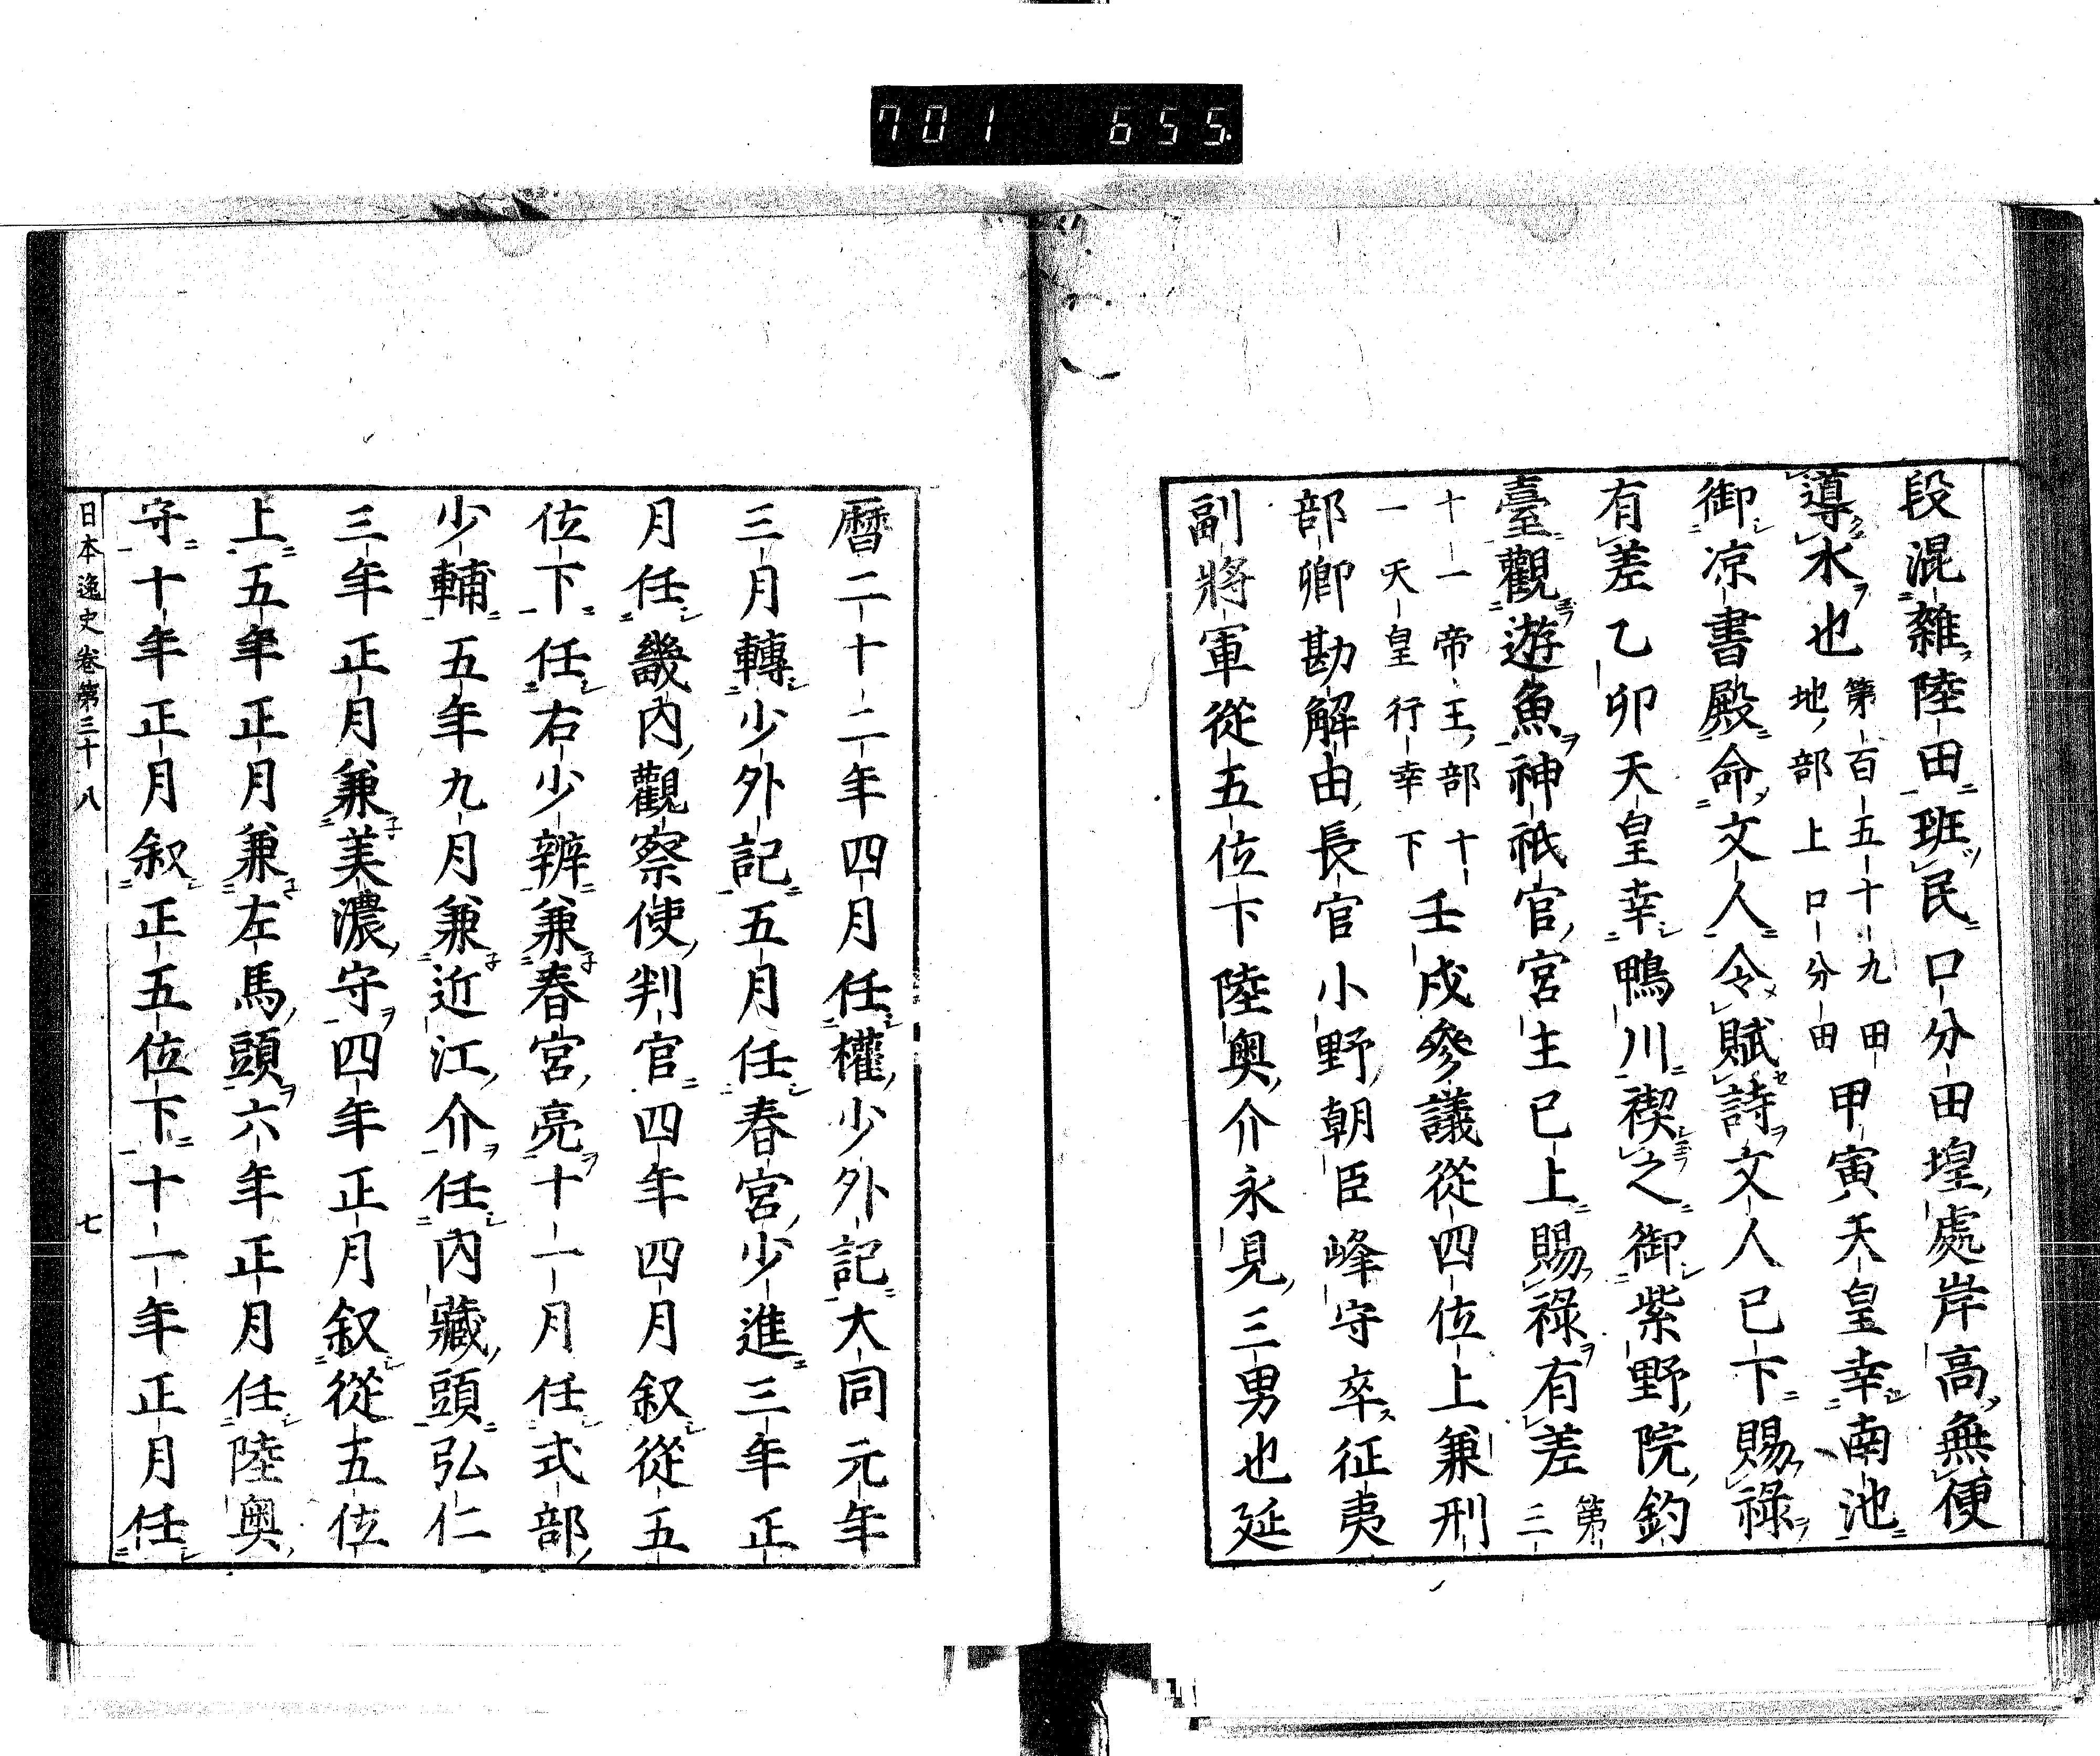 701 655
段混雜陸田班民口分田堭處岸高無便
導水也第百五十九田地部上口分田甲寅天皇幸南池
御凉書殿命文人令賦詩文人已下賜祿
有差乙卯天皇幸鴨川禊之御紫野院釣
臺觀遊魚神祇官宮主已上賜祿有差第三
十一帝王部十一天皇行幸下壬戌參議從四位上兼刑
部卿勘解由長官小野朝臣峰守卒征夷
副將軍從五位下陸奧介永見三男也延
曆二十二年四月任權少外記大同元年
三月轉少外記五月任春宮少進三年正
月任畿內觀察使判官四年四月叙從五
位下任右少辨兼春宮亮十一月任式部
少輔五年九月兼近江介任內藏頭弘仁
三年正月兼美濃守四年正月叙從五位
上五年正月兼左馬頭六年正月任陸奧
守十年正月叙正五位下十一年正月任
日本逸史卷第三十八 七